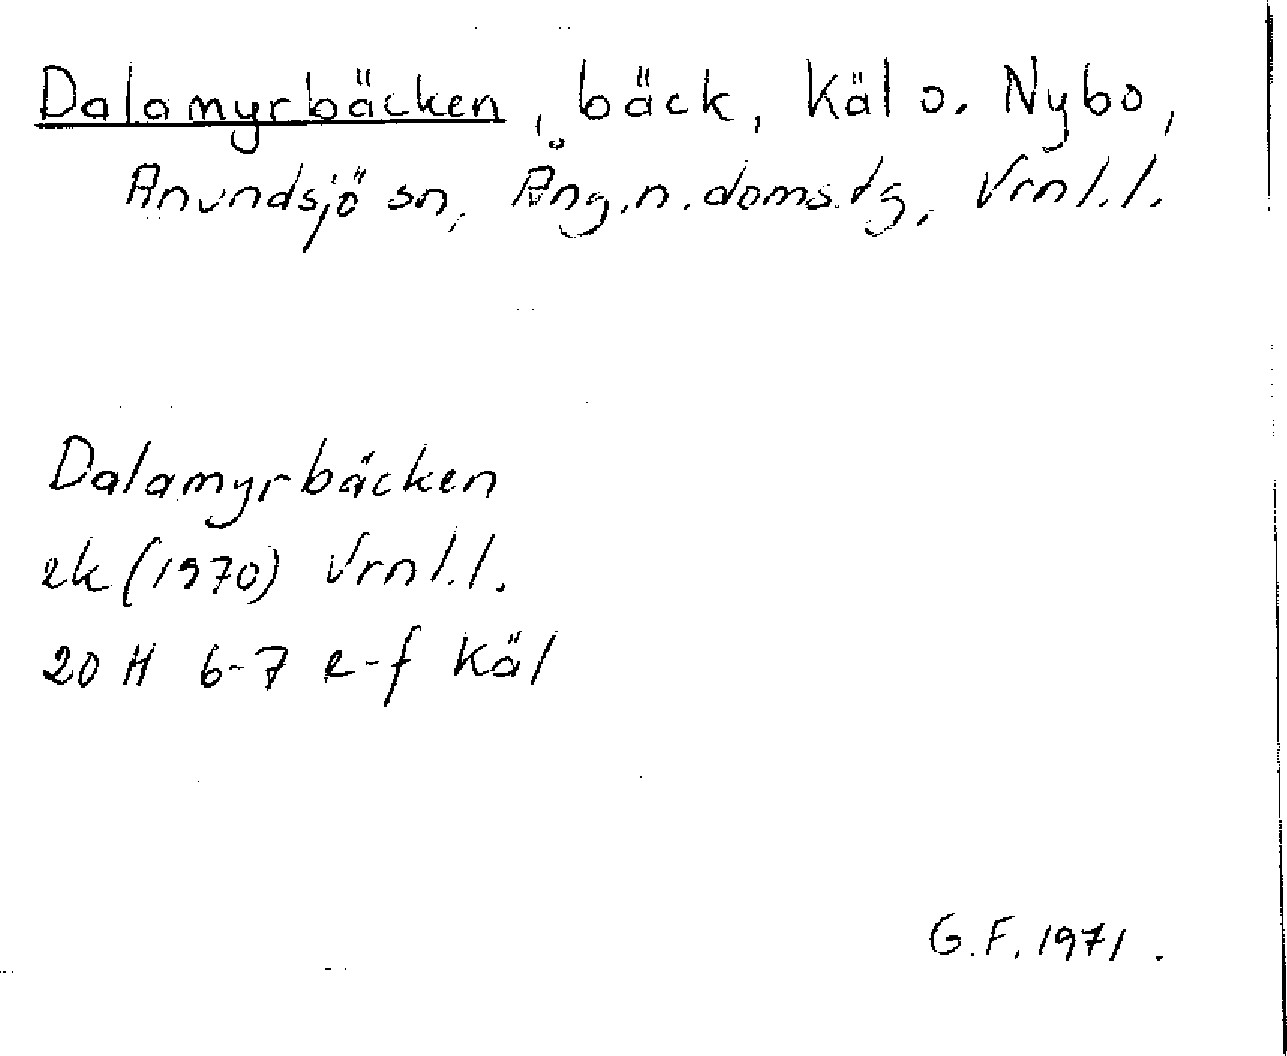 Dalamyrbäcken, bäck, Käl o. Nybo,
Anundsjö sn, Ång.n.doms.tg, Vrnl.l.
Dalamyrbäcken
ek (1970) Vrnl.l.
20 H 6-7 e-f Käl
G.F. 1971.